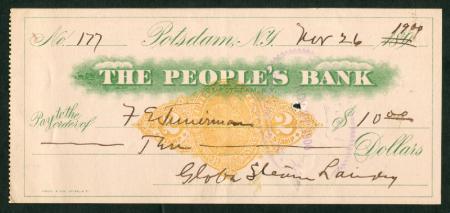 No. 177 Potsdam, N.Y. Nov 26 1900
THE PEOPLE'S BANK
Pay to the order of F E Timerman $ 10 00
2 2
Ten Dollars
Globe Steam Laundry